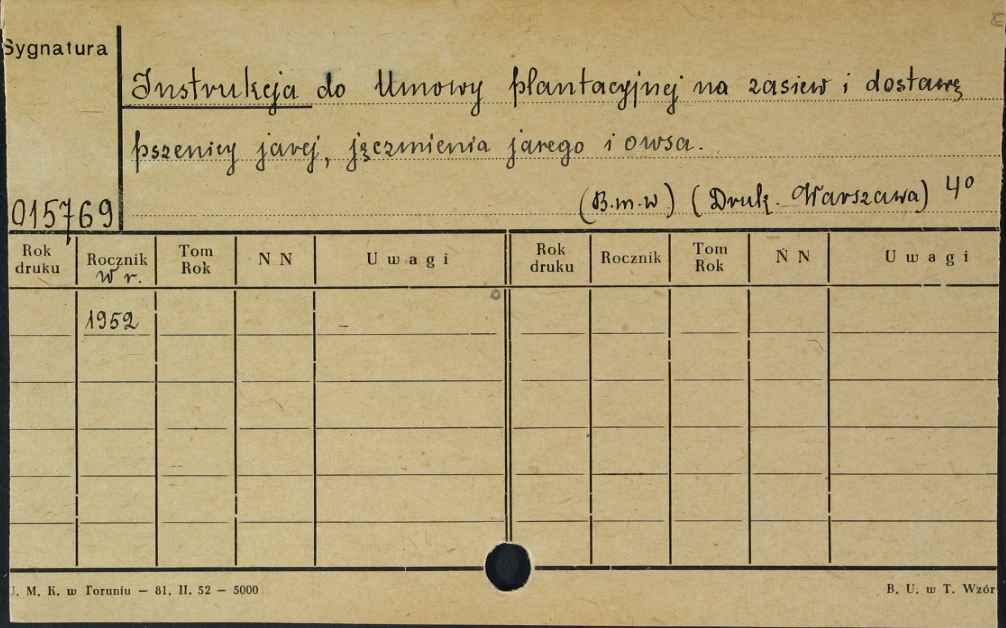 Sygnatura
Instrukcja do Umowy plantacyjnej na zasiew i dostawę
pszenicy jarej, jęczmienia jarego i owsa.
015769 (B.m.w) (Druk. Warszawa) 4º
Rok druku Rocznik Tom Rok N N Uwagi Rok druku Rocznik Tom Rok N N Uwagi
W r.
1952
U. M. K. w Toruniu – 81. II. 52 – 5000 B. U. w T. Wzór